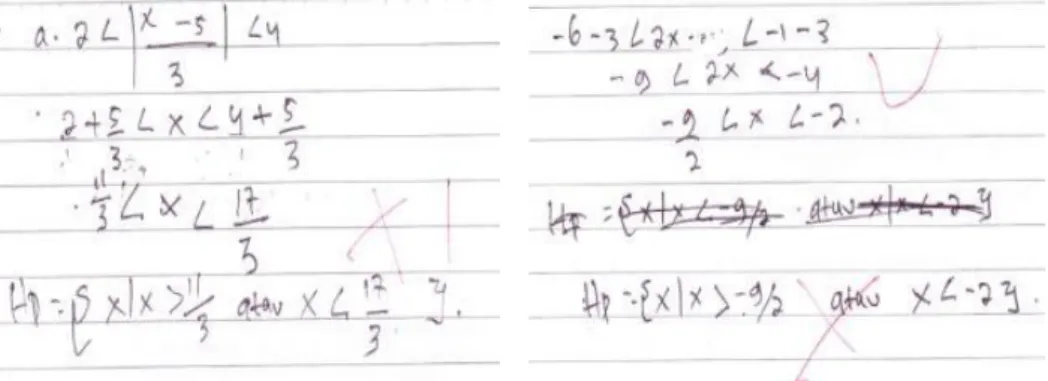 a. 2 < |x - 5 / 3| < 4
2 + 5/3 < x < 4 + 5/3
11/3 < x < 17/3
Hp = { x | x > 11/3 atau x < 17/3 }.
-6 - 3 < 2x < -1 - 3
-9 < 2x < -4
-9/2 < x < -2.
Hp = { x | x < -9/2 atau x | x < -2 }
Hp = { x | x > -9/2 atau x < -2 }.